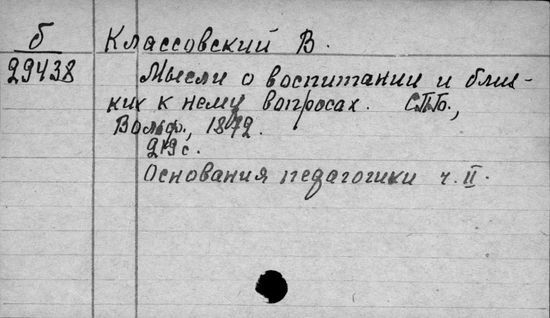 б Классовский В.
29438 Мысли о воспитании и близ-
ких к нему вопросах. СПб.,
Вольф, 1872.
219 с.
Основания педагогики ч. II.